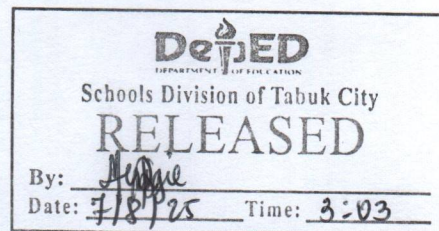 DepED
DEPARTMENT OF EDUCATION
Schools Division of Tabuk City
RELEASED
By:
Date: 7/8/25 Time: 3:03